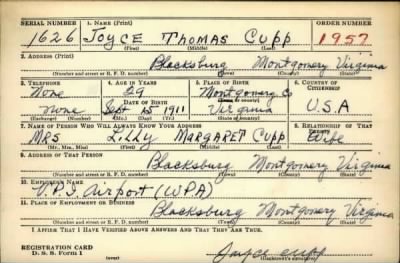 SERIAL NUMBER 1. NAME (Print) ORDER NUMBER
1626 Joyce Thomas Cupp 1957
(First) (Middle) (Last)
2. ADDRESS (Print)
Blacksburg Montgomery Virginia
(Number and street or R. F. D. number) (Town) (County) (State)
3. TELEPHONE 4. AGE IN YEARS 5. PLACE OF BIRTH 6. COUNTRY OF CITIZENSHIP
None 29 Montgomery Co
DATE OF BIRTH (Town or county)
none Sept 15 1911 Virginia U.S.A
(Exchange) (Number) (Mo.) (Day) (Yr.) (State or country)
7. NAME OF PERSON WHO WILL ALWAYS KNOW YOUR ADDRESS 8. RELATIONSHIP OF THAT PERSON
Mrs Lilly Margaret Cupp Wife
(Mr., Mrs., Miss) (First) (Middle) (Last)
9. ADDRESS OF THAT PERSON
Blacksburg Montgomery Virginia
(Number and street or R. F. D. number) (Town) (County) (State)
10. EMPLOYER'S NAME
V.P.I. Airport (WPA)
11. PLACE OF EMPLOYMENT OR BUSINESS
Blacksburg Montgomery Virginia
(Number and street or R. F. D. number) (Town) (County) (State)
I AFFIRM THAT I HAVE VERIFIED ABOVE ANSWERS AND THAT THEY ARE TRUE.
REGISTRATION CARD
D. S. S. Form 1 Joyce Cupp
(Registrant's signature)